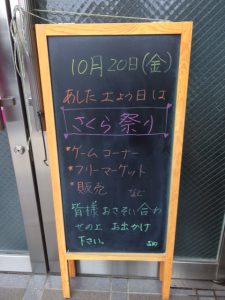 10月20日(金)
あした土よう日は
さくら祭り
*ゲームコーナー
*フリーマーケット
*販売 など
皆様おさそい合わ
せの上 お出かけ
下さい。